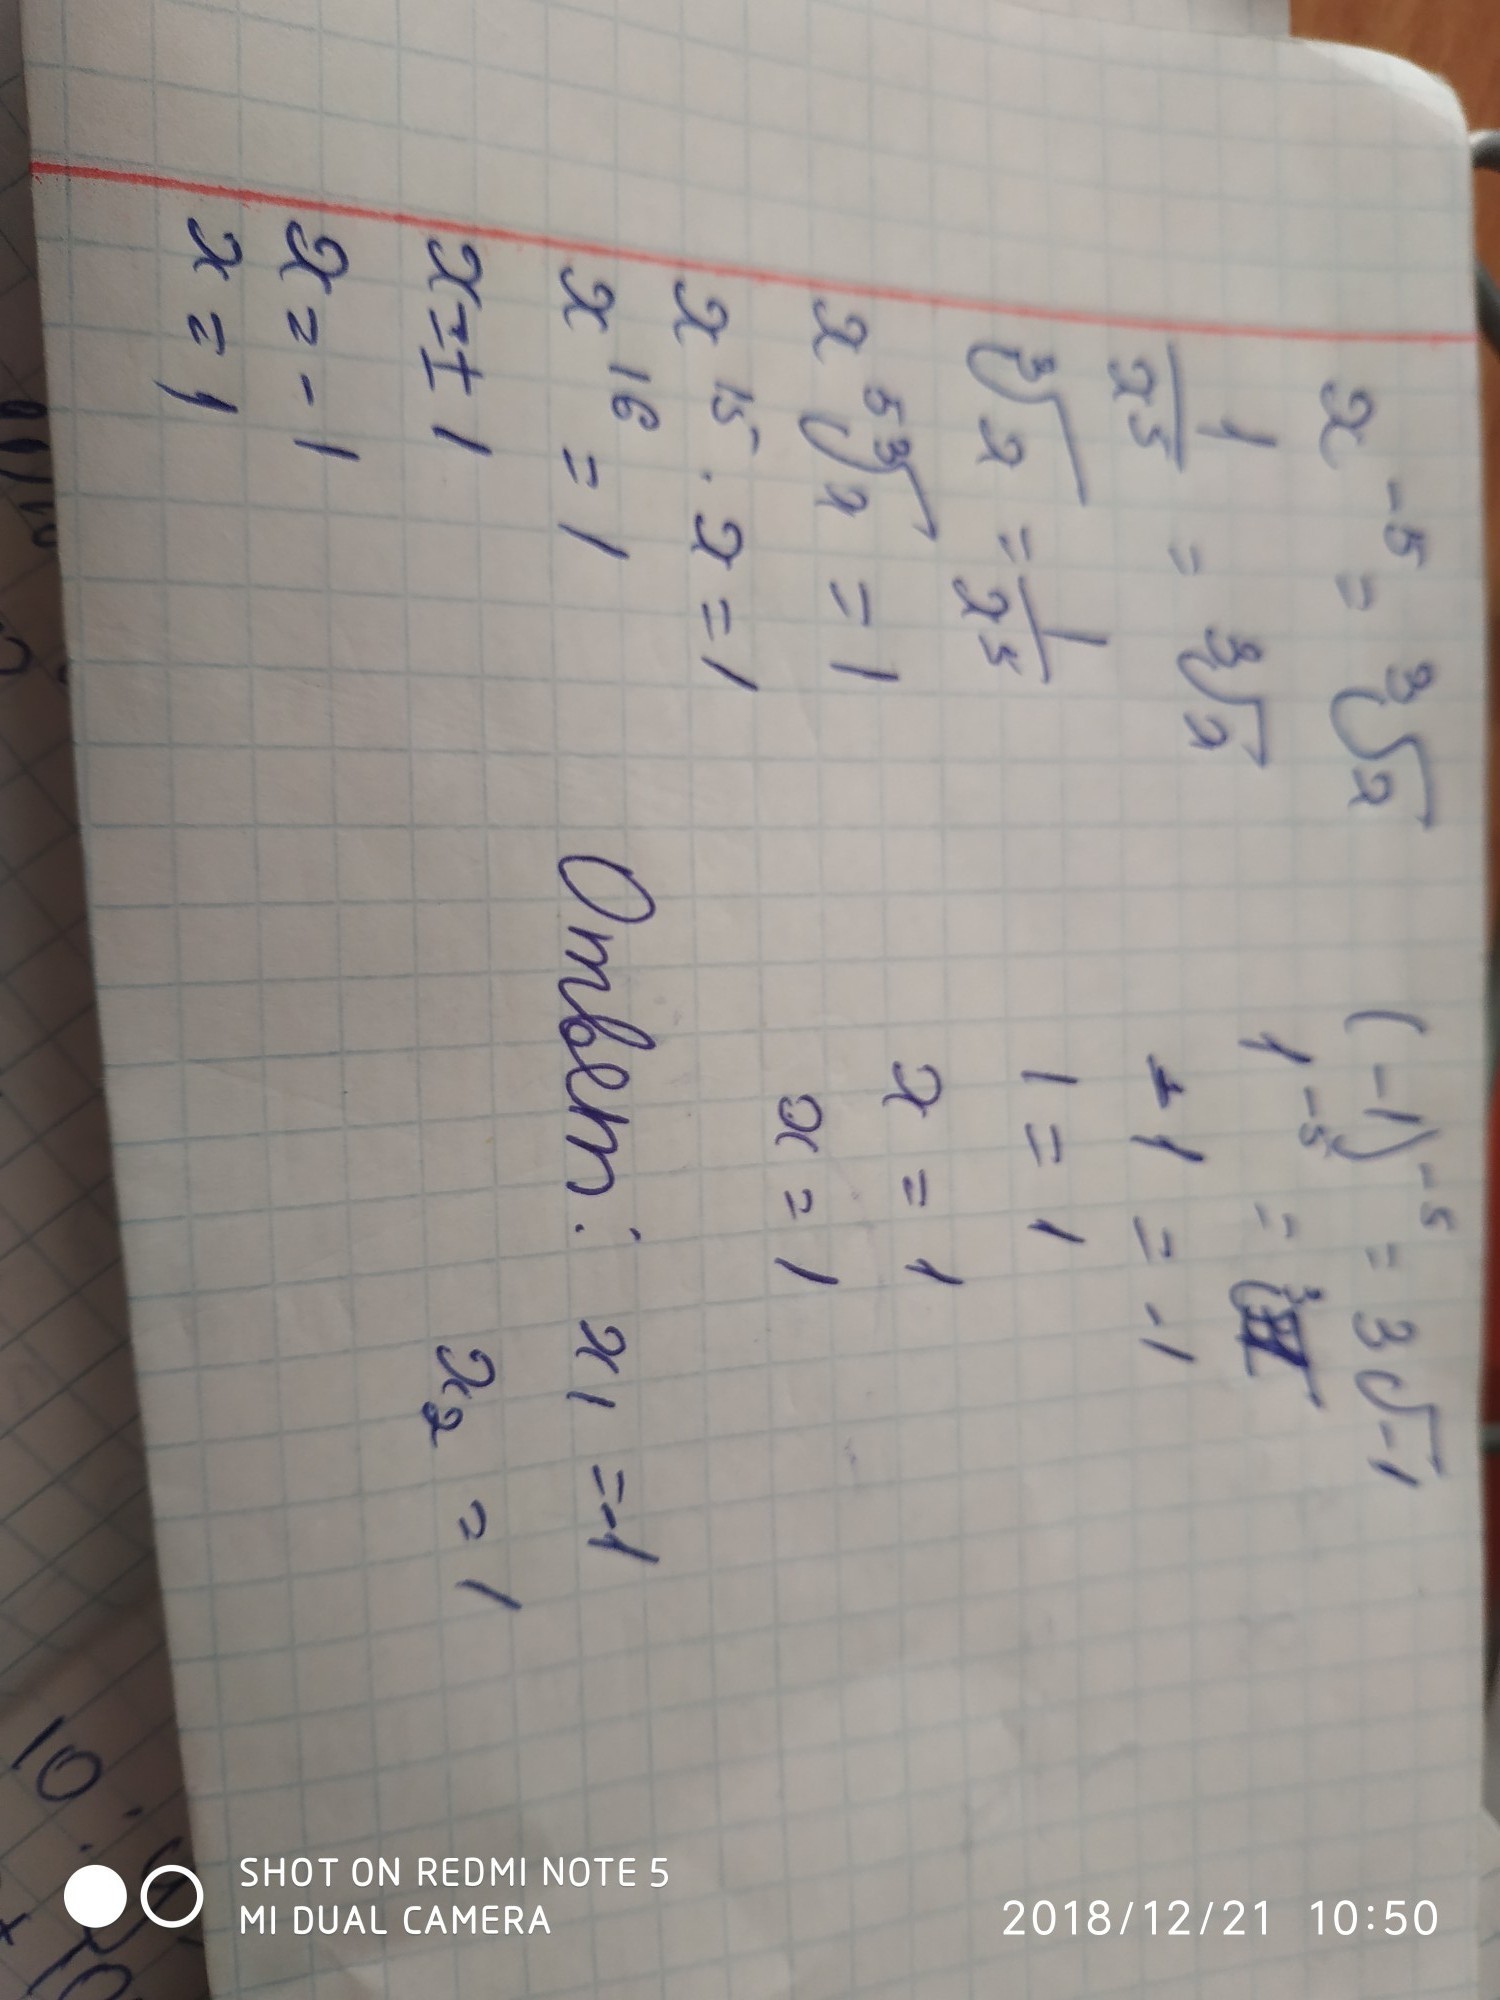 x⁻⁵ = ³√x
1/x⁵ = ³√x
³√x = 1/x⁵
x⁵ ³√x = 1
x¹⁵ · x = 1
x¹⁶ = 1
x = ± 1
x = -1
x = 1
(-1)⁻⁵ = 3√-1
1⁻⁵ =
-1 = -1
1 = 1
x = 1
x = 1
Ответ: x₁ = -1
x₂ = 1
10.
SHOT ON REDMI NOTE 5
MI DUAL CAMERA
2018/12/21 10:50